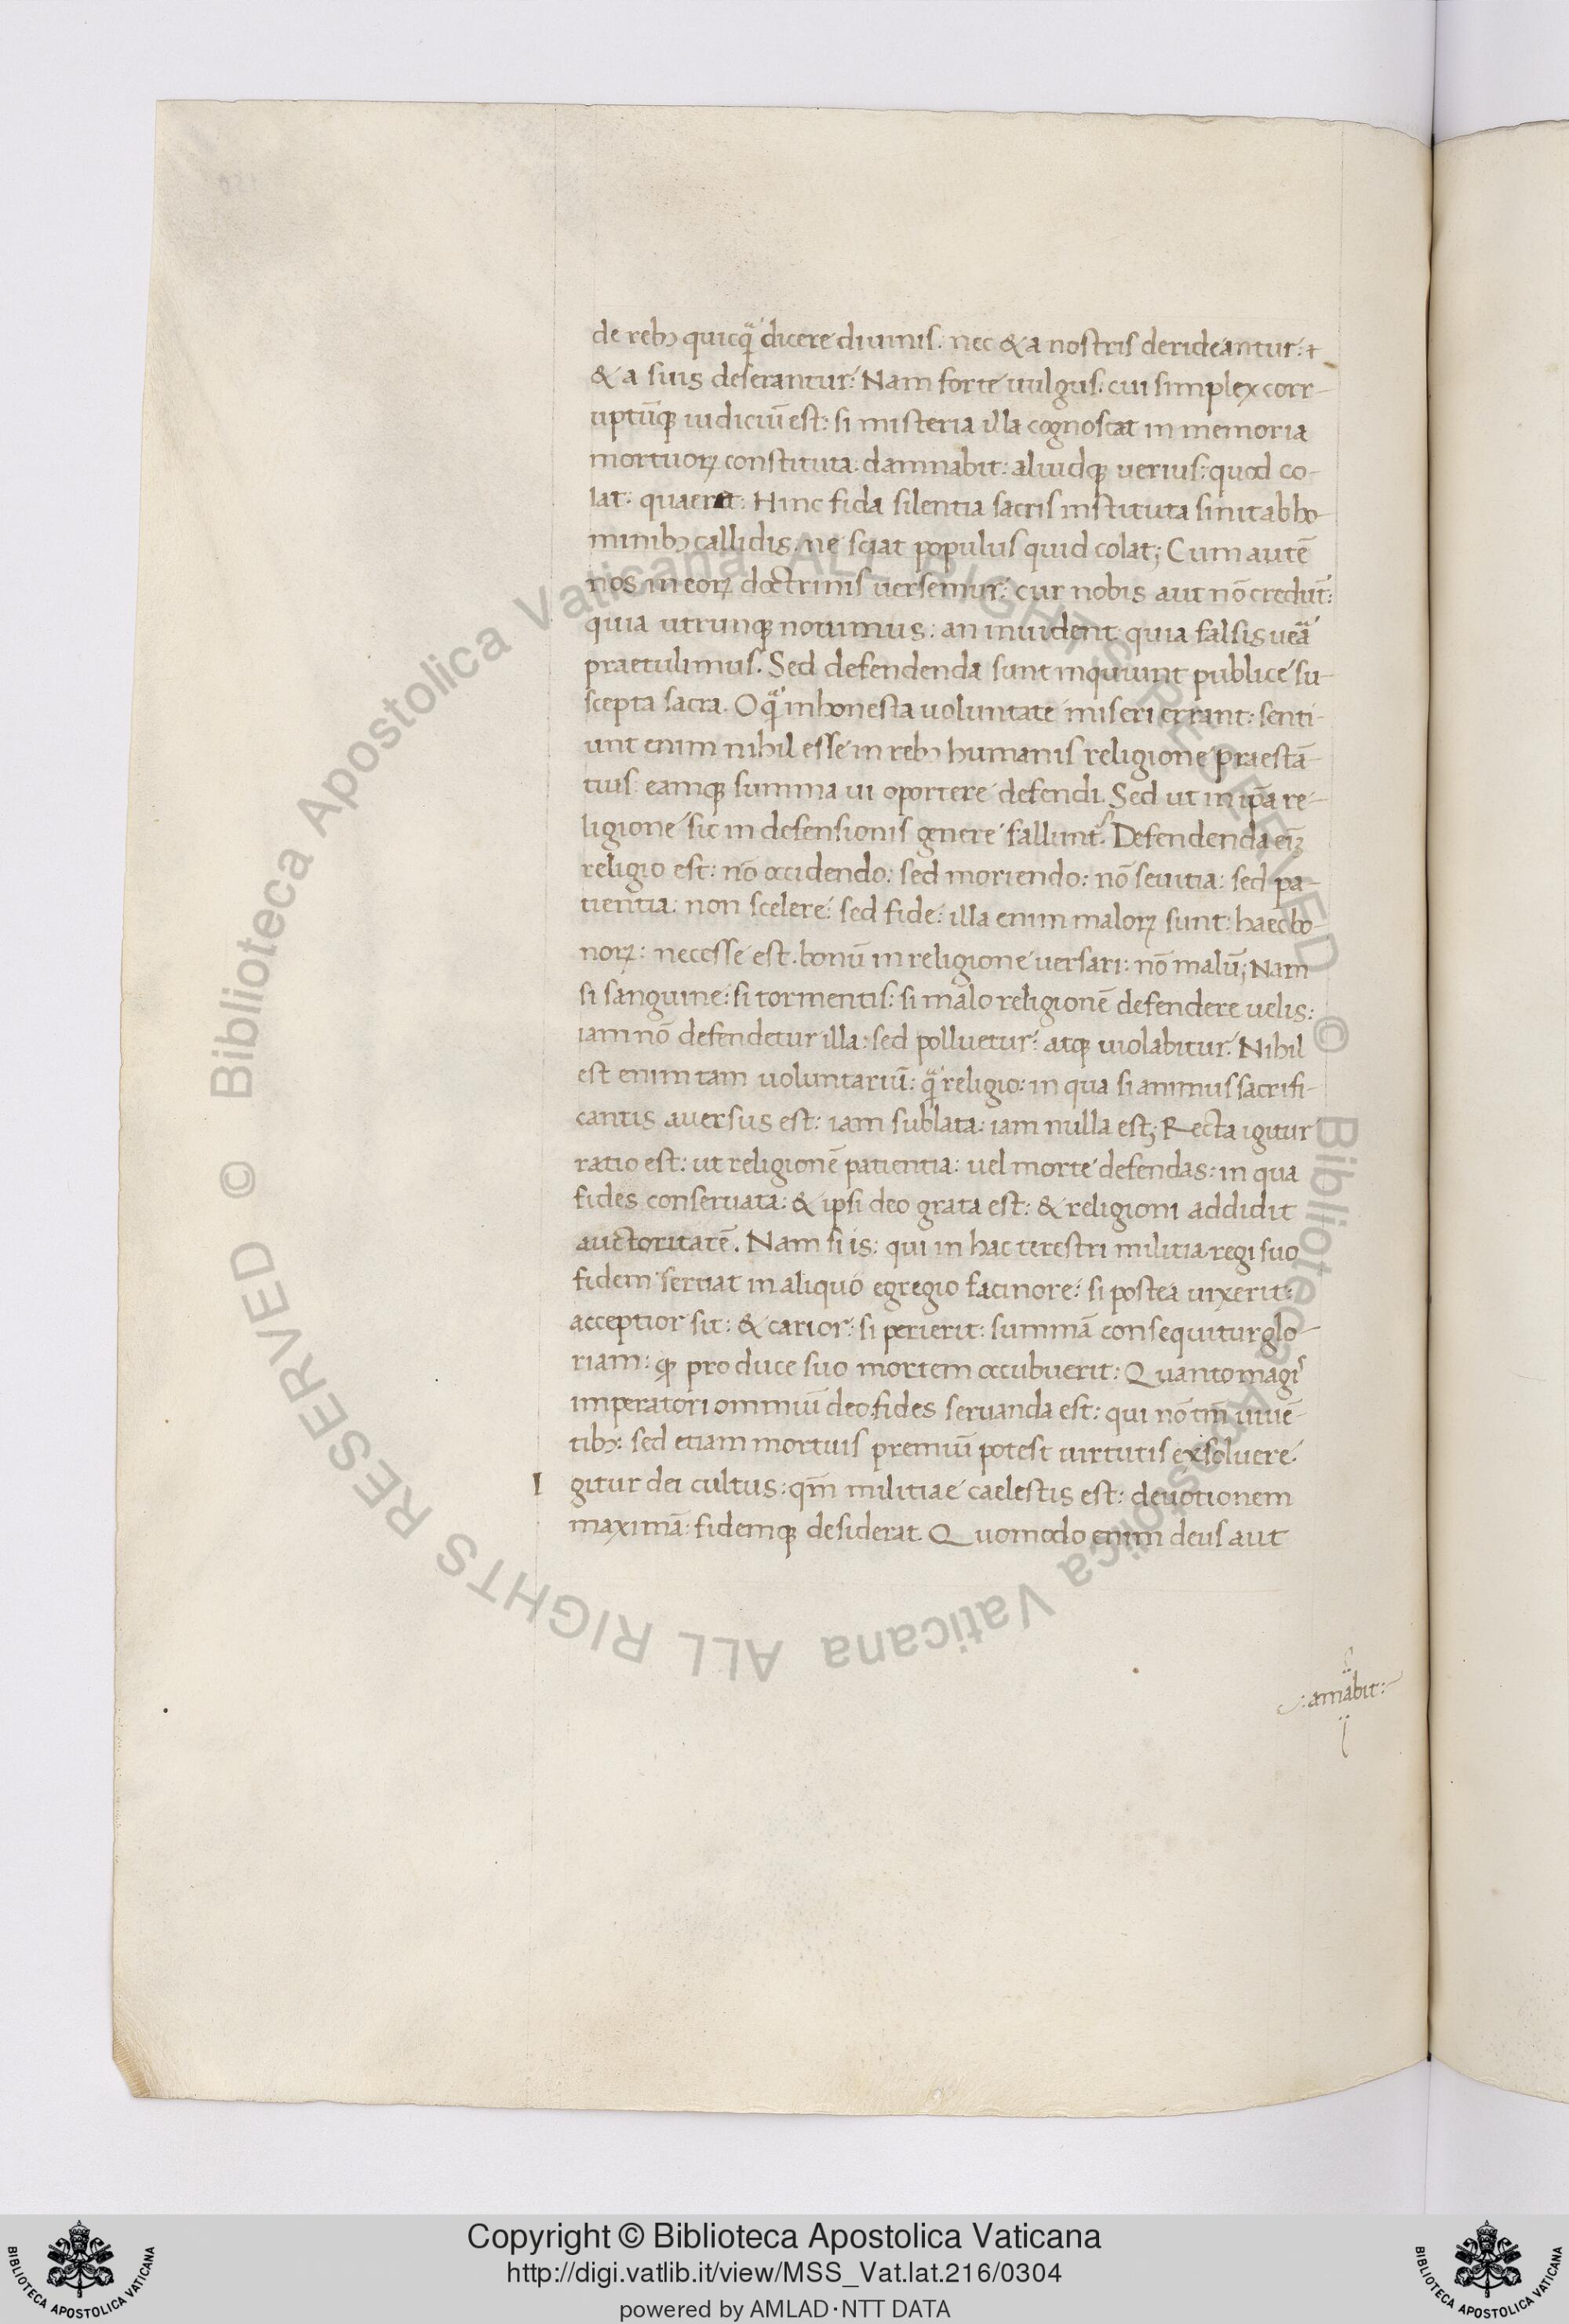 de rebꝫ quicq̃ dicere diuinis: nec & a nostris derideantur: t
& a suis deserantur: Nam forte uulgus. cui simplex corr-
uptũq; iudiciũ est: si misteria illa cognoscat in memoria
mortuoꝝ constituta. damnabit: aliudq; uerius: quod co-
lat: quaeret: Hinc fida silentia sacris instituta sinit ab ho-
minibꝫ callidis. ne sciat populus quid colat; Cum autẽ
nos in eoꝝ doctrinis uersemur: cur nobis aut nõ credũt:
quia utrunq; nouimus: an inuident quia falsis ueã
praetulimus. Sed defendenda sunt inquiunt publice su-
scepta sacra. O q̃ inhonesta uoluntate miseri errant: senti-
unt enim nihil esse in rebꝫ humanis religione praestã-
tius eamq; summa ui oportere defendi. Sed ut in ip̃a re-
ligione sic in defensionis genere falluntͬ. Defendenda eiꝫ
religio est: nõ occidendo: sed moriendo: nõ seuitia: sed pa-
tientia: non scelere: sed fide: illa enim maloꝝ sunt: haec bo-
noꝝ: necesse est. bonũ in religione uersari: nõ malũ; Nam
si sanguine: si tormentis: si malo religionẽ defendere uelis:
iam nõ defendetur illa: sed polluetur: atq; uiolabitur. Nihil
est enim tam uoluntariũ: q̃ religio: in qua si animus sacrifi-
cantis auersus est: iam sublata: iam nulla est; Recta igitur
ratio est: ut religionẽ patientia: uel morte defendas: in qua
fides conseruata: & ipsi deo grata est: & religioni addidit
auctoritatẽ. Nam si is: qui in hac terestri militia regi suo
fidem seruat in aliquo egregio facinore: si postea uixerit:
acceptior sit: & carior: si perierit: summã consequitur glo-
riam: ꝙ pro duce suo mortem occubuerit: Quanto magis
imperatori omniũ deo fides seruanda est: qui nõ tm̃ uiuẽ-
tibꝫ: sed etiam mortuis premiũ potest uirtutis exsoluere.
I gitur dei cultus: qm̃ militiae caelestis est: deuotionem
maximã: fidemq; desiderat. Quomodo enim deus aut
: amabit:
© Biblioteca Apostolica Vaticana ALL RIGHTS RESERVED © Biblioteca Apostolica Vaticana ALL RIGHTS RESERVED
Copyright © Biblioteca Apostolica Vaticana
http://digi.vatlib.it/view/MSS_Vat.lat.216/0304
powered by AMLAD·NTT DATA
BIBLIOTECA APOSTOLICA VATICANA
BIBLIOTECA APOSTOLICA VATICANA